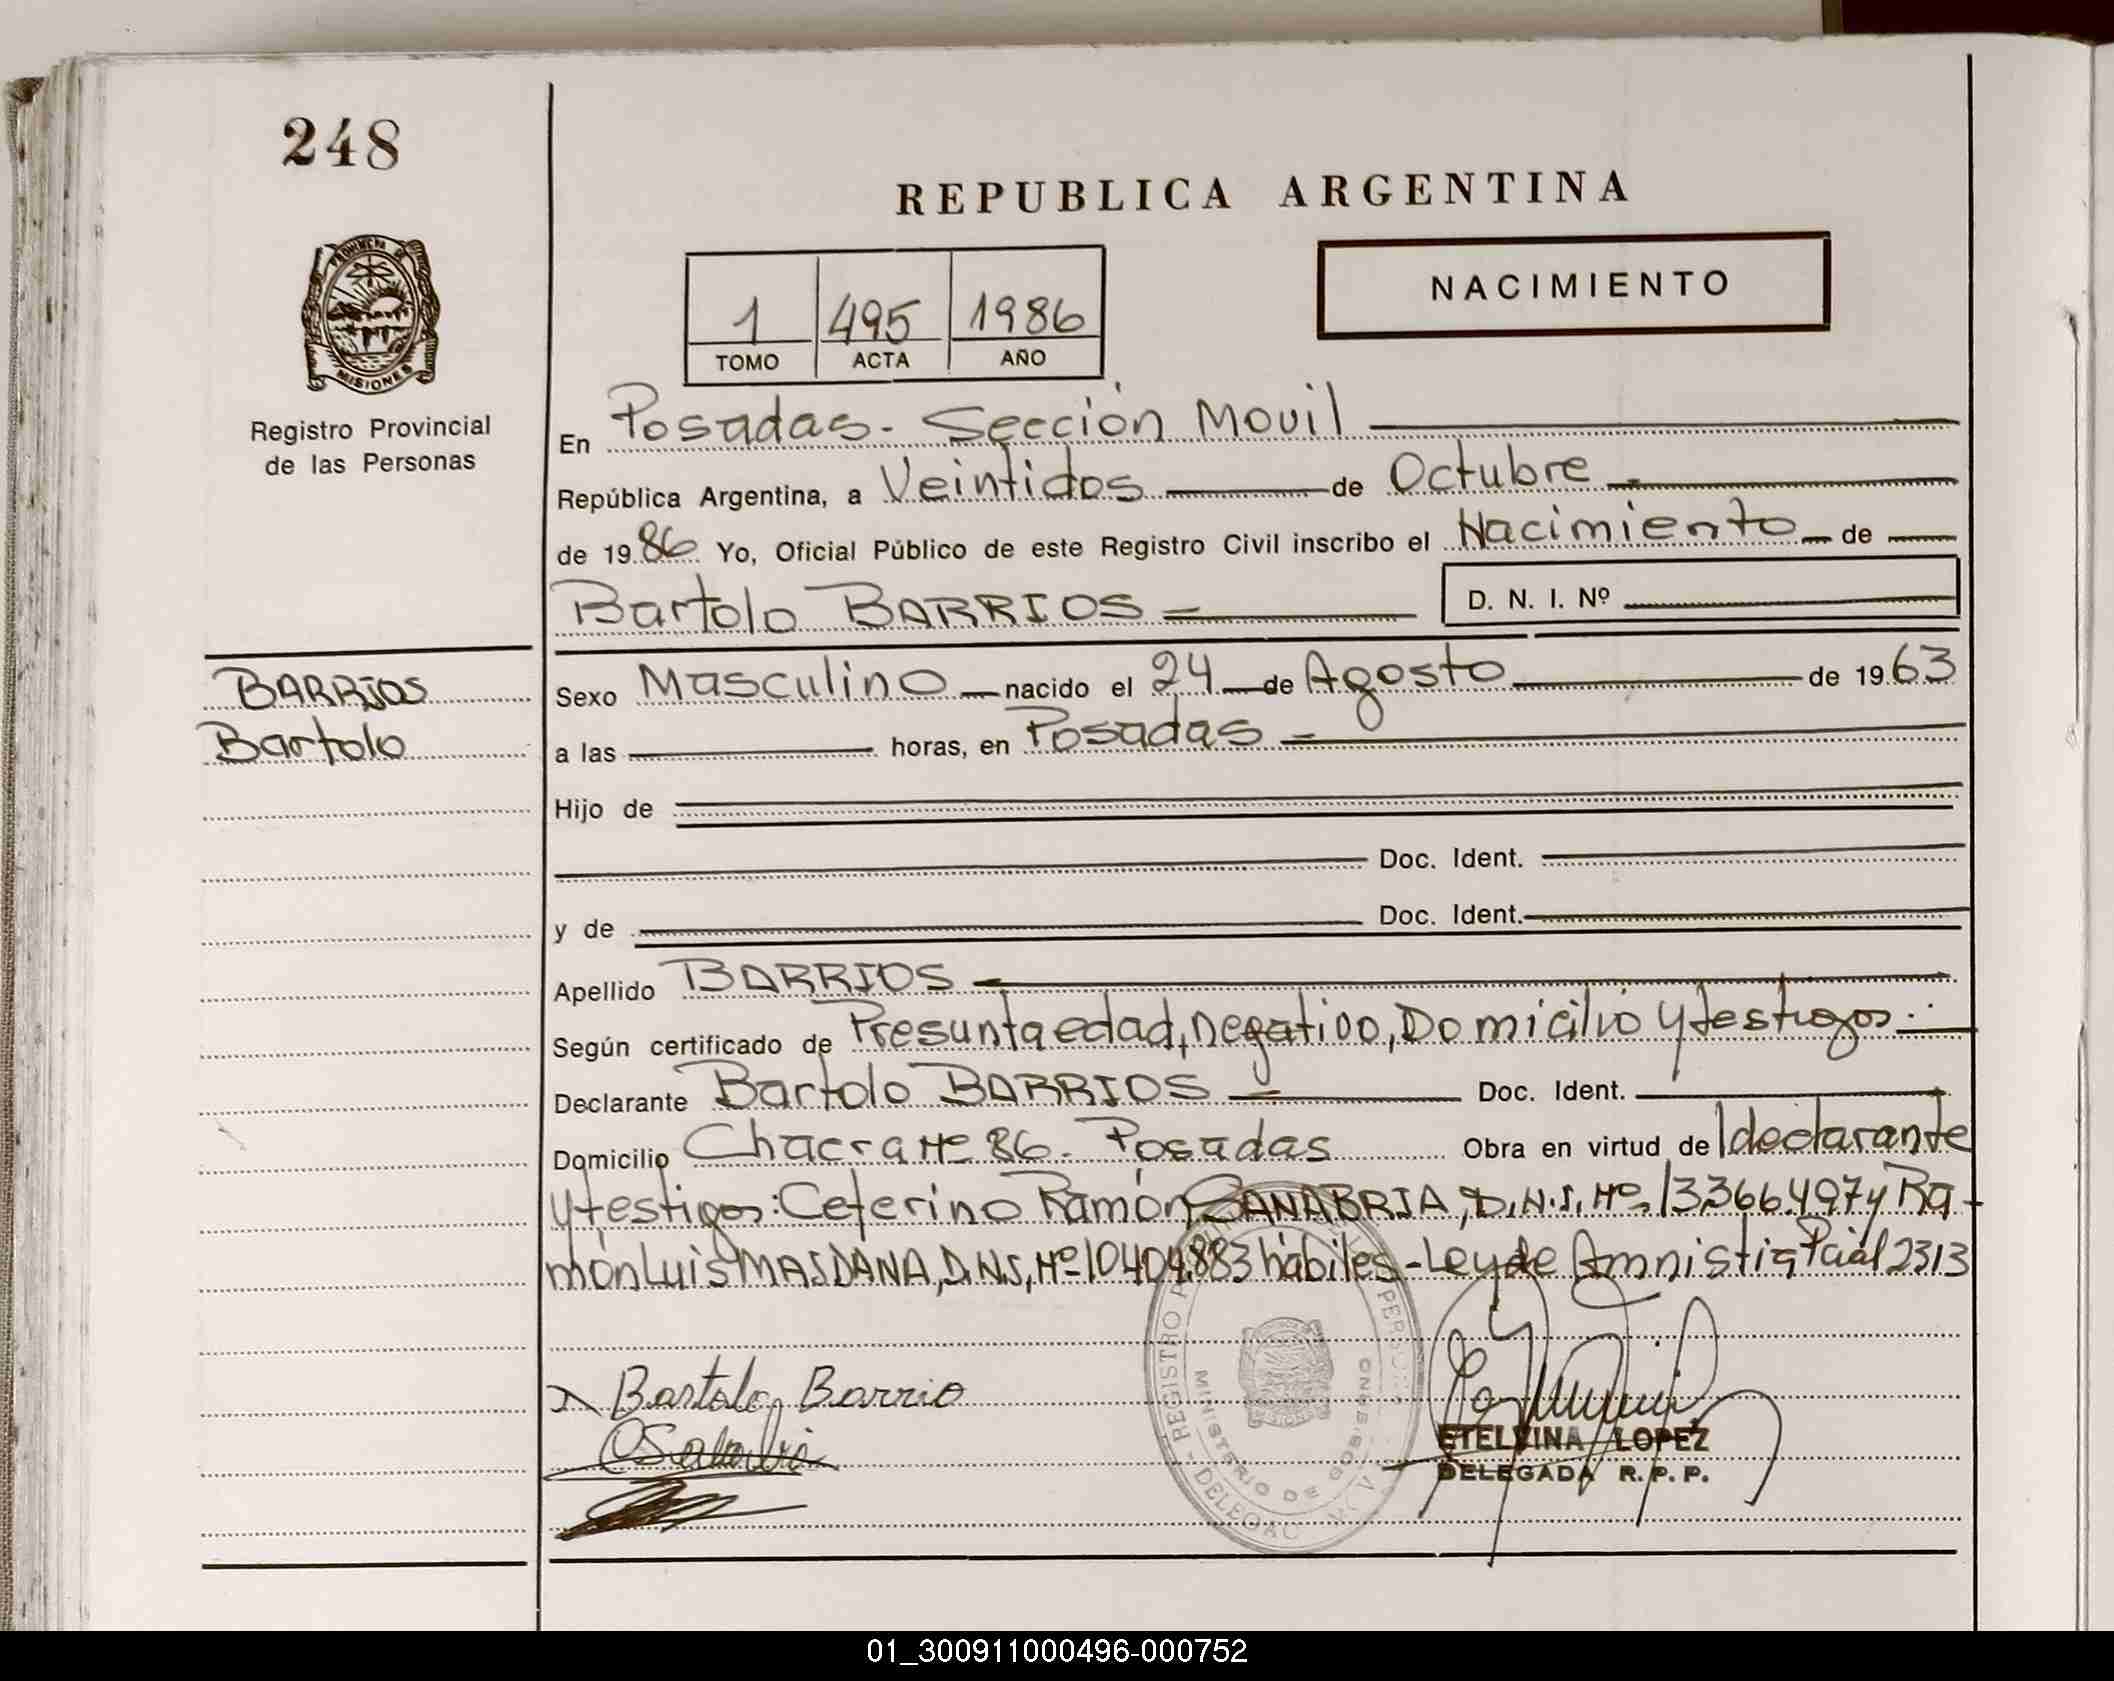 248
REPUBLICA ARGENTINA
PROVINCIA DE MISIONES
Registro Provincial
de las Personas
NACIMIENTO
1 495 1986
TOMO ACTA AÑO
En Posadas. Sección Movil
República Argentina, a Veintidos de Octubre
de 1986 Yo, Oficial Público de este Registro Civil inscribo el Nacimiento de
Bartolo BARRIOS D. N. I. Nº
BARRIOS
Bartolo
Sexo Masculino nacido el 24 de Agosto de 1963
a las horas, en Posadas
Hijo de
Doc. Ident.
y de Doc. Ident.
Apellido BARRIOS
Según certificado de Presunta edad, negativo, Domicilio y testigos.
Declarante Bartolo BARRIOS Doc. Ident.
Domicilio Chacra Nº 86. Posadas Obra en virtud de l declarante
y testigos: Ceferino Ramón SANABRIA, D.N.I. Nº 13366.497 y Ra-
món Luis MASDANA, D.N.I, Nº 10404.883 hábiles - Ley de Amnistia Pcial 2313
Bartolo Barrio
REGISTRO
MINISTERIO DE GOBIERNO
ETELVINA LOPEZ
DELEGADA R. P. P.
01_300911000496-000752